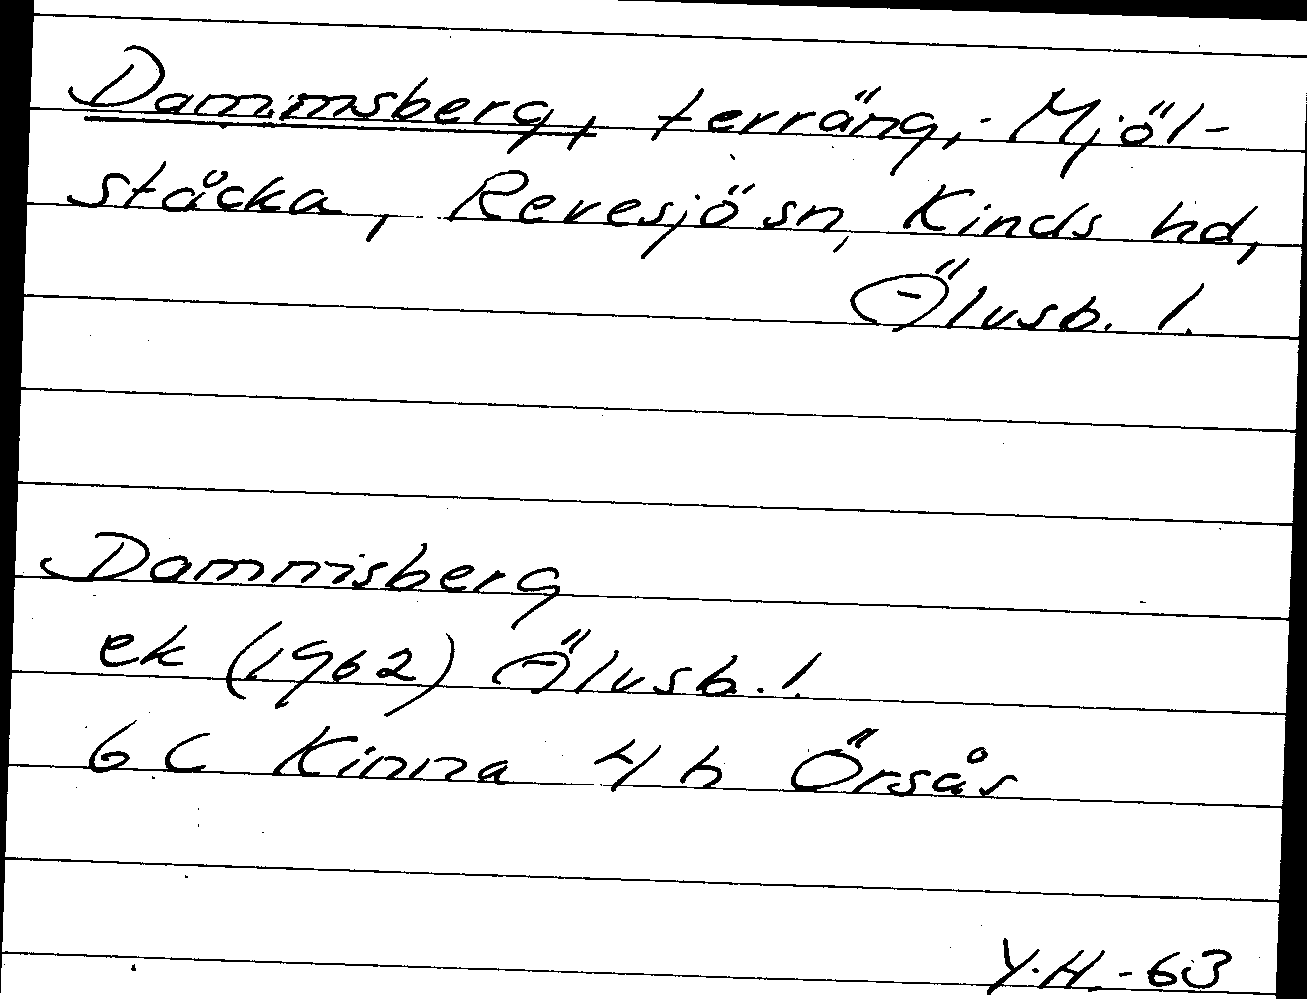 Dammsberg, terräng, Mjöl-
ståcka, Revesjö sn, Kinds hd,
Älvsb. l.
Dammsberg
ek (1962) Älvsb. l.
6 C Kinna 4 h Örsås
Y.H. -63